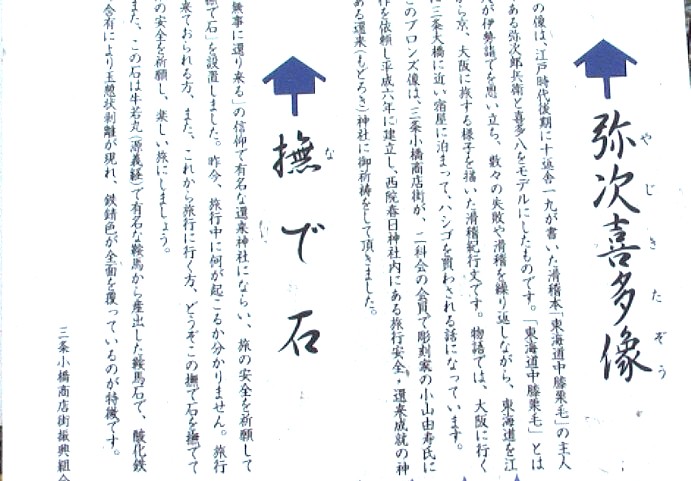 弥次喜多像
やじきたぞう
の像は、江戸時代後期に十返舎一九が書いた滑稽本「東海道中膝栗毛」の主人
ある弥次郎兵衛と喜多八をモデルにしたものです。「東海道中膝栗毛」とは
人が伊勢詣でを思い立ち、数々の失敗や滑稽を繰り返しながら、東海道を江
ら京、大阪に旅する様子を描いた滑稽紀行文です。物語では、大阪に行く
に三条大橋に近い宿屋に泊まって、ハシゴを買わされる話になっています。
このブロンズ像は、三条小橋商店街が、二科会の会員で彫刻家の小山由寿氏に
作を依頼し平成六年に建立し、西院春日神社内にある旅行安全・還来成就の神
ある還来(もどろき)神社に御祈祷をして頂きました。
撫で石
な
無事に還り来る」の信仰で有名な還来神社にならい、旅の安全を祈願して
撫で石」を設置しました。昨今、旅行中に何が起こるか分かりません。旅行
来ておられる方、また、これから旅行に行く方、どうぞこの撫で石を撫でて
の安全を祈願し、楽しい旅にしましょう。
また、この石は牛若丸(源義経)で有名な鞍馬から産出した鞍馬石で、酸化鉄
含有により玉葱状剥離が現れ、鉄錆色が全面を覆っているのが特徴です。
三条小橋商店街振興組合